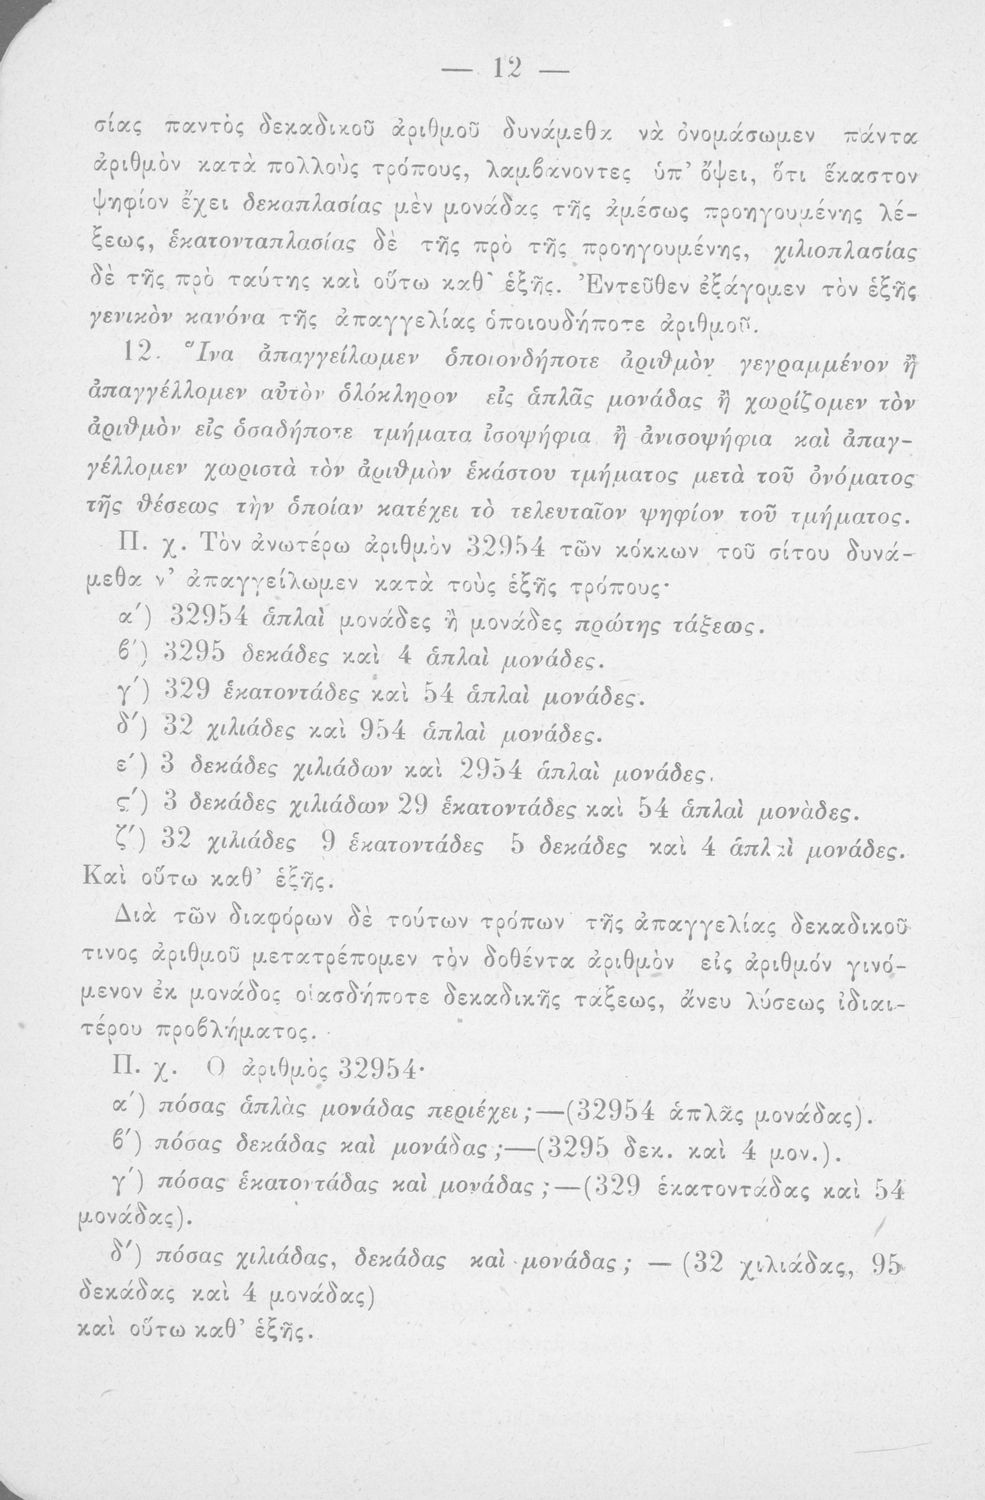 — 12 —
σίας παντὸς δεκαδικοῦ ἀριθμοῦ δυνάμεθα νὰ ὀνομάσωμεν πάντα
ἀριθμὸν κατὰ πολλοὺς τρόπους, λαμβάνοντες ὑπ’ ὄψει, ὅτι ἕκαστον
ψηφίον ἔχει δεκαπλασίας μὲν μονάδας τῆς ἀμέσως προηγουμένης λέ-
ξεως, ἑκατονταπλασίας δὲ τῆς πρὸ τῆς προηγουμένης, χιλιοπλασίας
δὲ τῆς πρὸ ταύτης καὶ οὕτω καθ’ ἑξῆς. Ἐντεῦθεν ἐξάγομεν τὸν ἑξῆς
γενικὸν κανόνα τῆς ἀπαγγελίας ὁποιουδήποτε ἀριθμοῦ.
12. Ἵνα ἀπαγγείλωμεν ὁποιονδήποτε ἀριθμὸν γεγραμμένον ἢ
ἀπαγγέλλομεν αὐτὸν ὁλόκληρον εἰς ἁπλᾶς μονάδας ἢ χωρίζομεν τὸν
ἀριθμὸν εἰς ὁσαδήποτε τμήματα ἰσοψήφια ἢ ἀνισοψήφια καὶ ἀπαγ-
γέλλομεν χωριστὰ τὸν ἀριθμὸν ἑκάστου τμήματος μετὰ τοῦ ὀνόματος
τῆς θέσεως τὴν ὁποίαν κατέχει τὸ τελευταῖον ψηφίον τοῦ τμήματος.
Π. χ. Τὸν ἀνωτέρω ἀριθμὸν 32954 τῶν κόκκων τοῦ σίτου δυνά-
μεθα ν’ ἀπαγγείλωμεν κατὰ τοὺς ἑξῆς τρόπους·
α΄) 32954 ἁπλαῖ μονάδες ἢ μονάδες πρώτης τάξεως.
β΄) 3295 δεκάδες καὶ 4 ἁπλαὶ μονάδες.
γ΄) 329 ἑκατοντάδες καὶ 54 ἁπλαὶ μονάδες.
δ΄) 32 χιλιάδες καὶ 954 ἁπλαὶ μονάδες.
ε΄) 3 δεκάδες χιλιάδων καὶ 2954 ἁπλαὶ μονάδες.
ς΄) 3 δεκάδες χιλιάδων 29 ἑκατοντάδες καὶ 54 ἁπλαὶ μονὰδες.
ζ΄) 32 χιλιάδες 9 ἑκατοντάδες 5 δεκάδες καὶ 4 ἁπλαὶ μονάδες.
Καὶ οὕτω καθ’ ἑξῆς.
Διὰ τῶν διαφόρων δὲ τούτων τρόπων τῆς ἀπαγγελίας δεκαδικοῦ
τινος ἀριθμοῦ μετατρέπομεν τὸν δοθέντα ἀριθμὸν εἰς ἀριθμόν γινό-
μενον ἐκ μονάδος οἱασδήποτε δεκαδικῆς τάξεως, ἄνευ λύσεως ἰδιαι-
τέρου προβλήματος.
Π. χ. Ο ἀριθμὸς 32954·
α΄) πόσας ἁπλὰς μονάδας περιέχει;—(32954 ἁπλᾶς μονάδας).
β΄) πόσας δεκάδας καὶ μονάδας;—(3295 δεκ. καὶ 4 μον.).
γ΄) πόσας ἑκατοντάδας καὶ μονάδας;—(329 ἑκατοντάδας καὶ 54
μονάδας).
δ΄) πόσας χιλιάδας, δεκάδας καὶ μονάδας; — (32 χιλιάδας, 95
δεκάδας καὶ 4 μονάδας)
καὶ οὕτω καθ’ ἑξῆς.